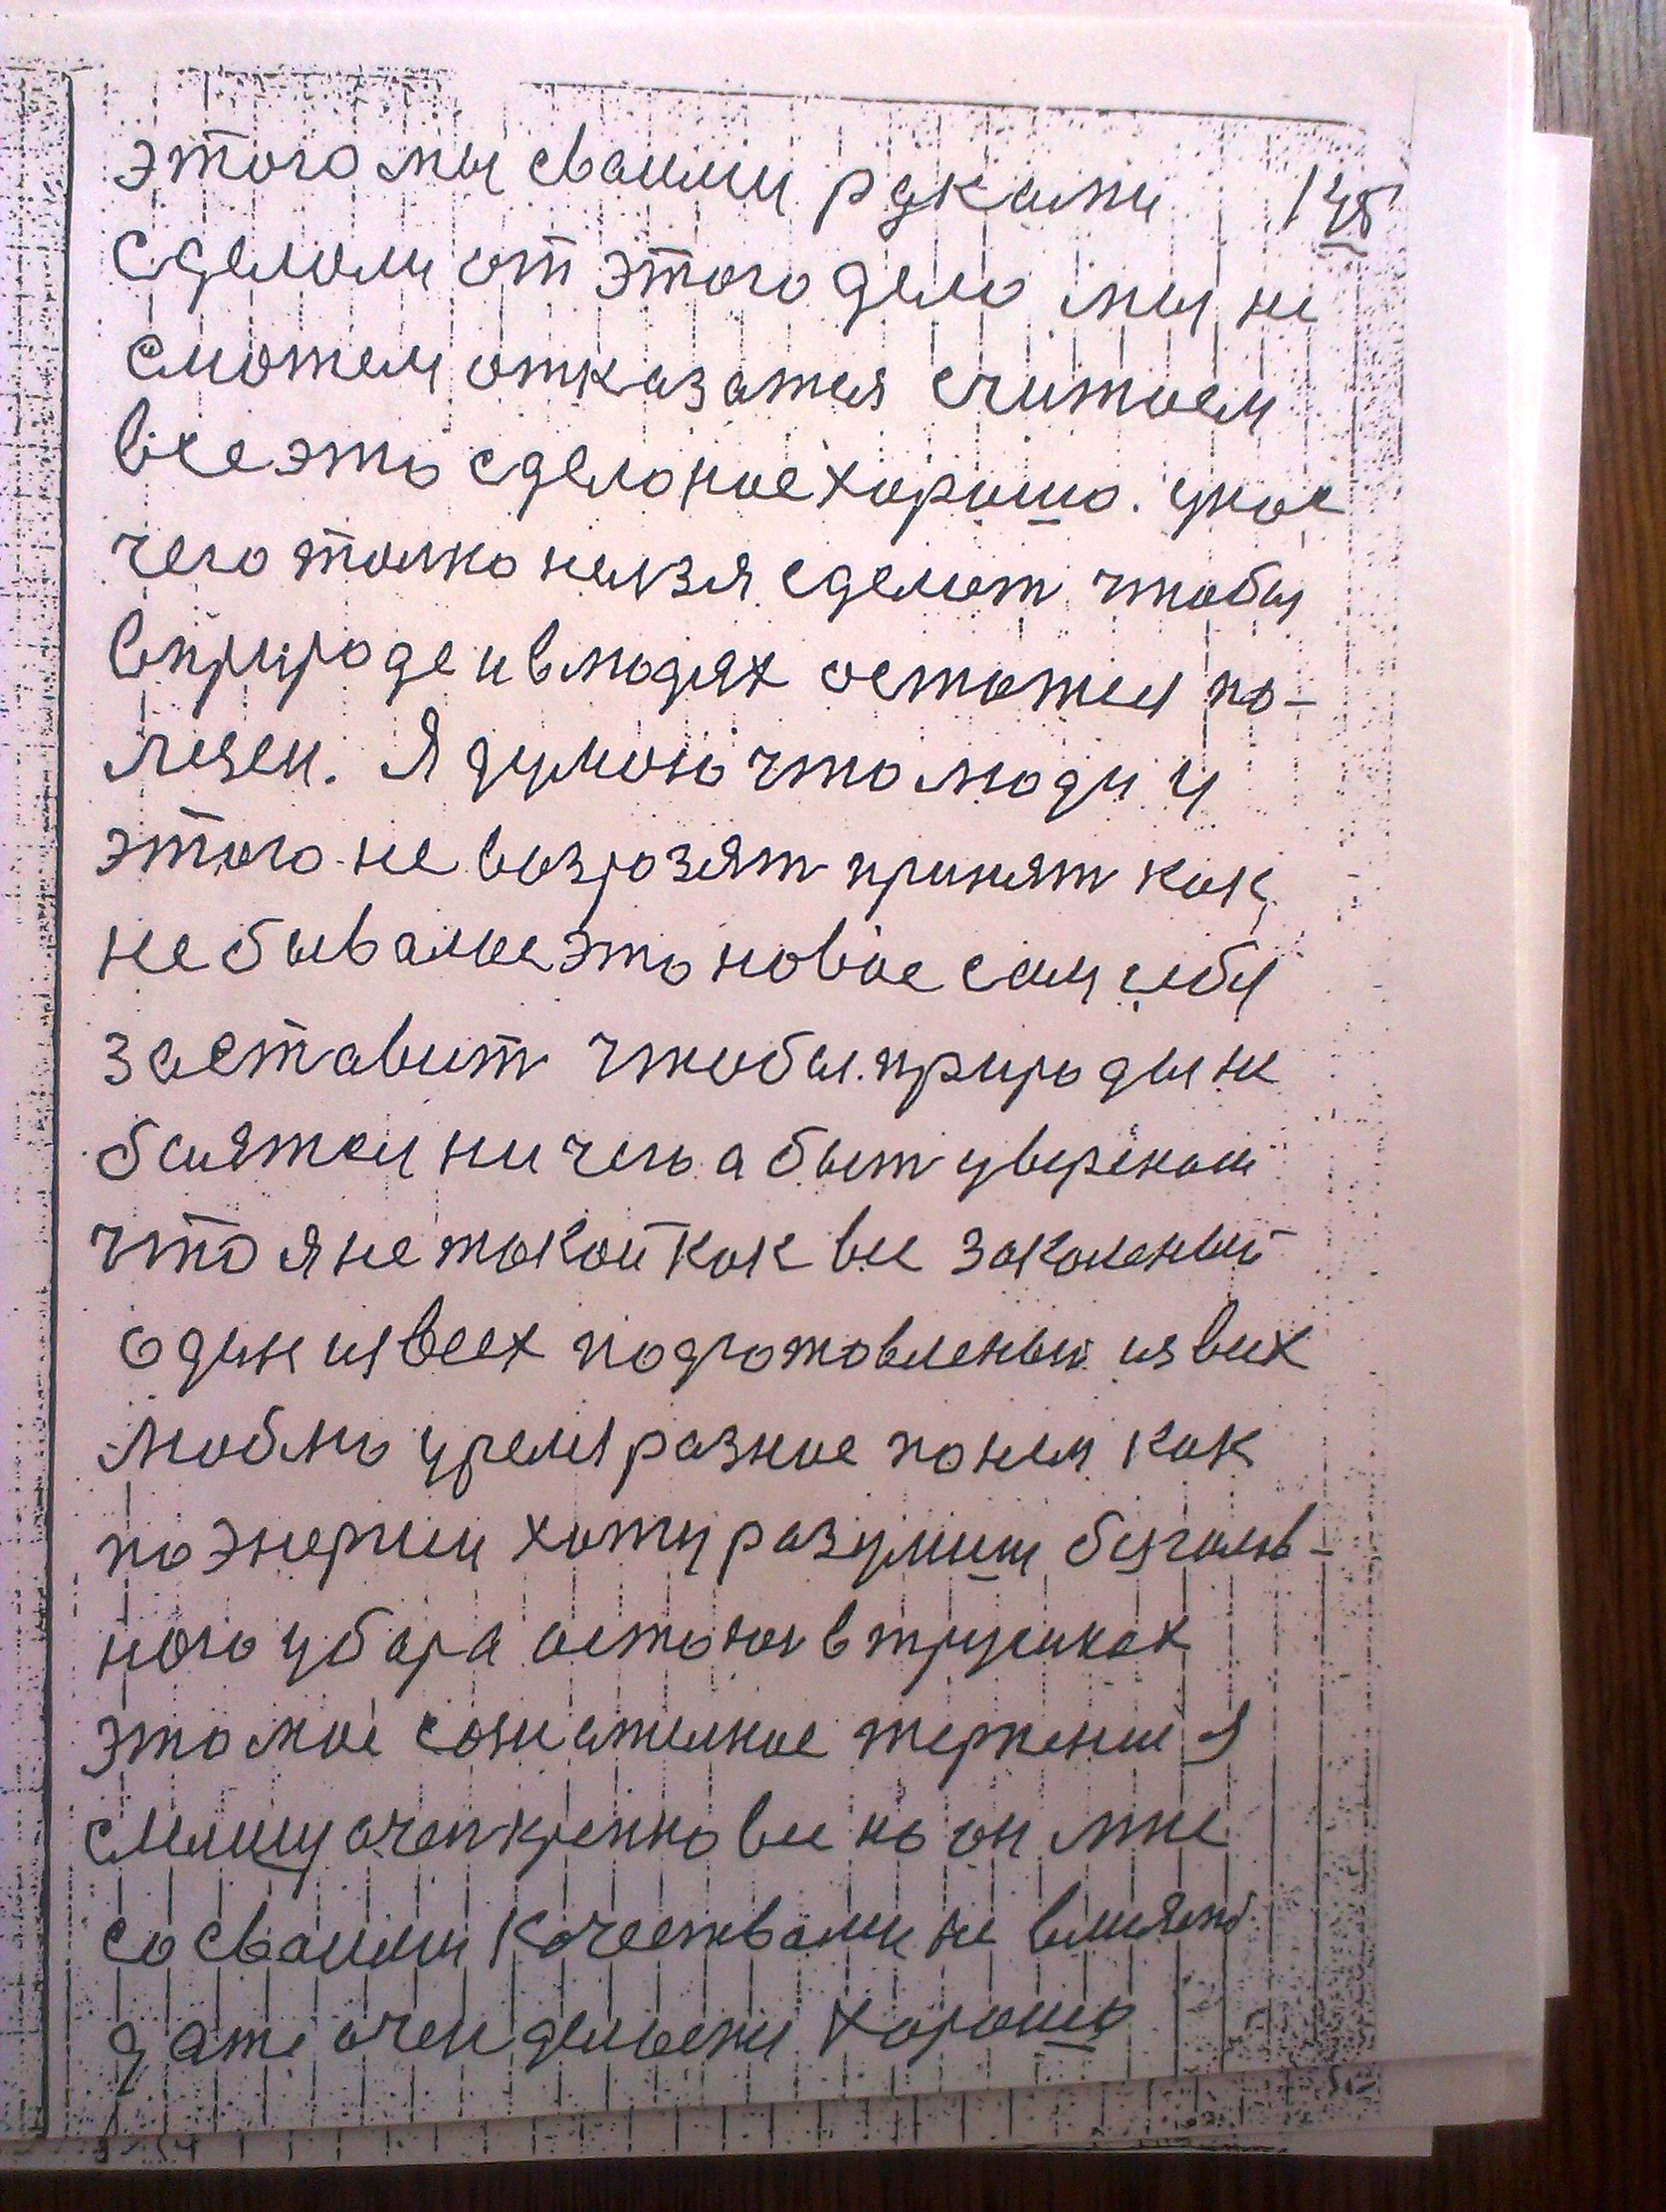 этого мы сваими руками 148
сделоли от этого дело мы не
сможем отказатся считоем
все это сделоное хорошо. умое
чего толко нелзя сделот чтобы
в природе и в людях остотся по-
лезен. Я думою что люди и
этого не возрозят принят как
не бывалае это новое сам себя
заставит чтобы природы не
боятся ни чего а быт увереном
что я не токой как все законеный
один из всех подготовленый из всех
люблю время разное по нем как
по энергии хожу разумши без голов-
ного убора остоюс в трусиках
это мое сознателное терпение я
слышу очен крепко все но он мне
со сваими качествами не влияет
даже очен делоется хорошо